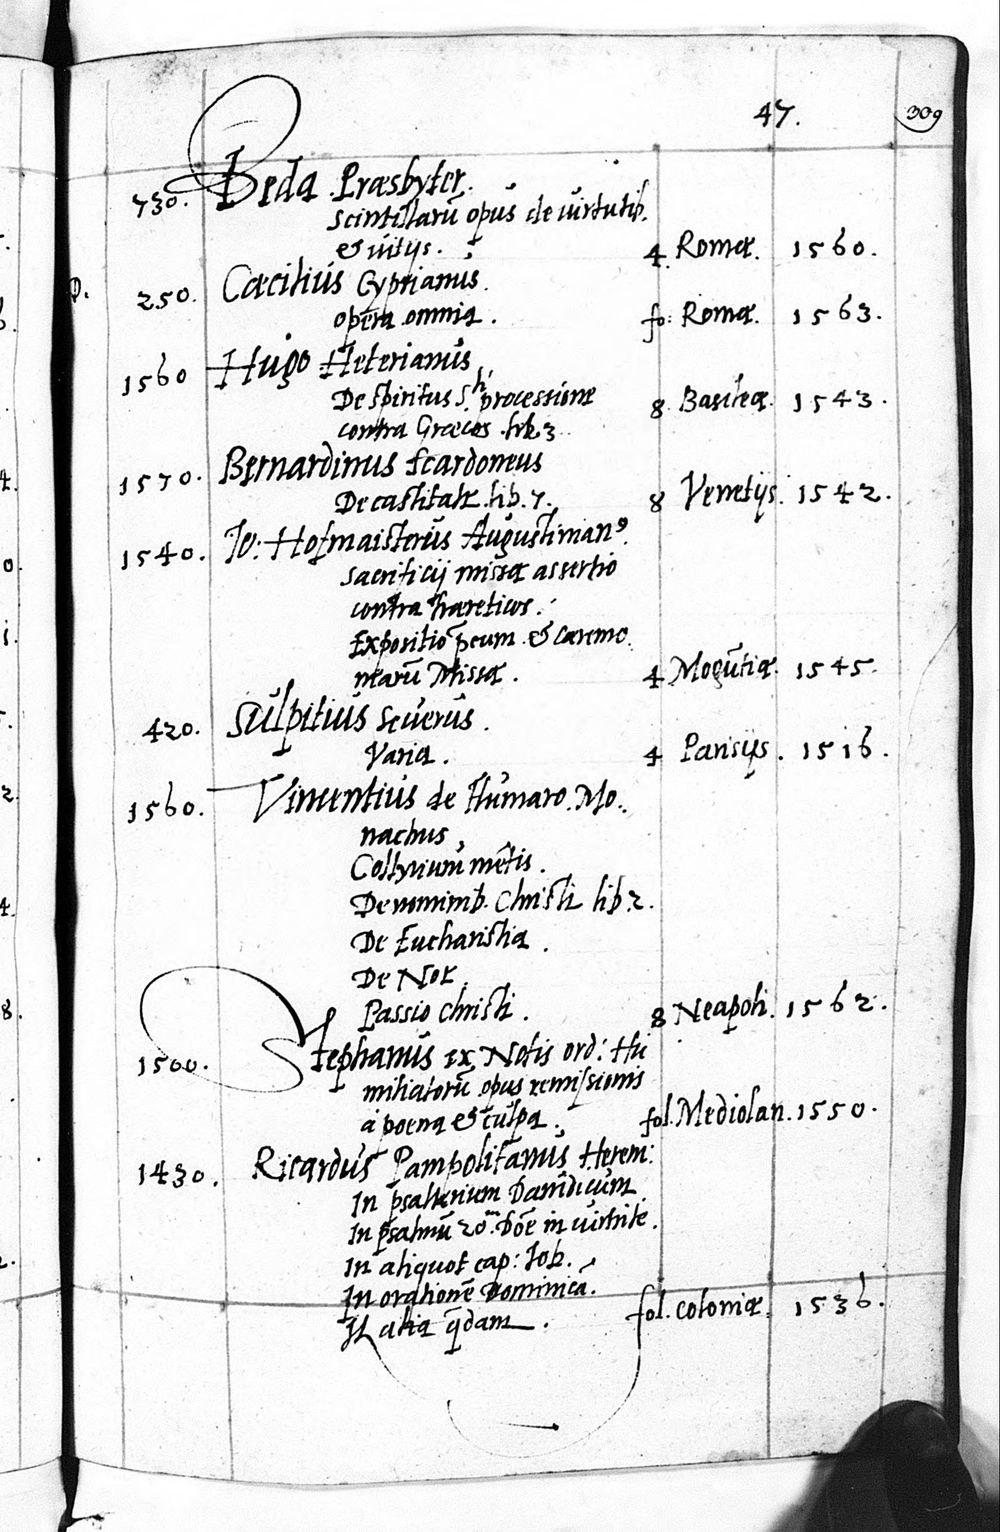 47. 309
730. Beda Præsbyter.
Scintillarū opus de virtutib.
& vitijs. 4. Romæ. 1560.
250. Cæcilius Cyprianus.
opera omnia. fo: Romæ. 1563.
1560 Hugo Heterianus
De Spiritus S.ti processione 8. Basileæ. 1543.
contra Græcos. lib. 3
1570. Bernardinus Scardoneus
De castitate. lib. 7. 8 Venetijs. 1542.
1540. Io: Hofmaisterus Augustinianꝰ.
sacrificij missæ assertio
contra hæreticos.
Expositio p̄cum & cæremo
niarū Missæ. 4 Mogūtiæ. 1545.
420. Sulpitius Severus.
Varia. 4 Parisijs. 1516.
1560. Vincentius de Humaro. Mo.
nachus,
Collyrium mētis.
De nominib. Christi lib 2.
De Eucharistia.
De
Passio Christi. 8 Neapoli. 1562.
1500. Stephanus ex Notis ord: Hu
miliatorū opus remissionis
à poena & culpa. fol. Mediolan. 1550.
1430. Ricardus Pampolitanus Herem:
In psalterium Davidicum
In psalmū 20m. Dōe in virtute.
In aliquot cap: Iob.
In orationē Dominicā.
Et alia q̄dam. fol. coloniæ. 1536.